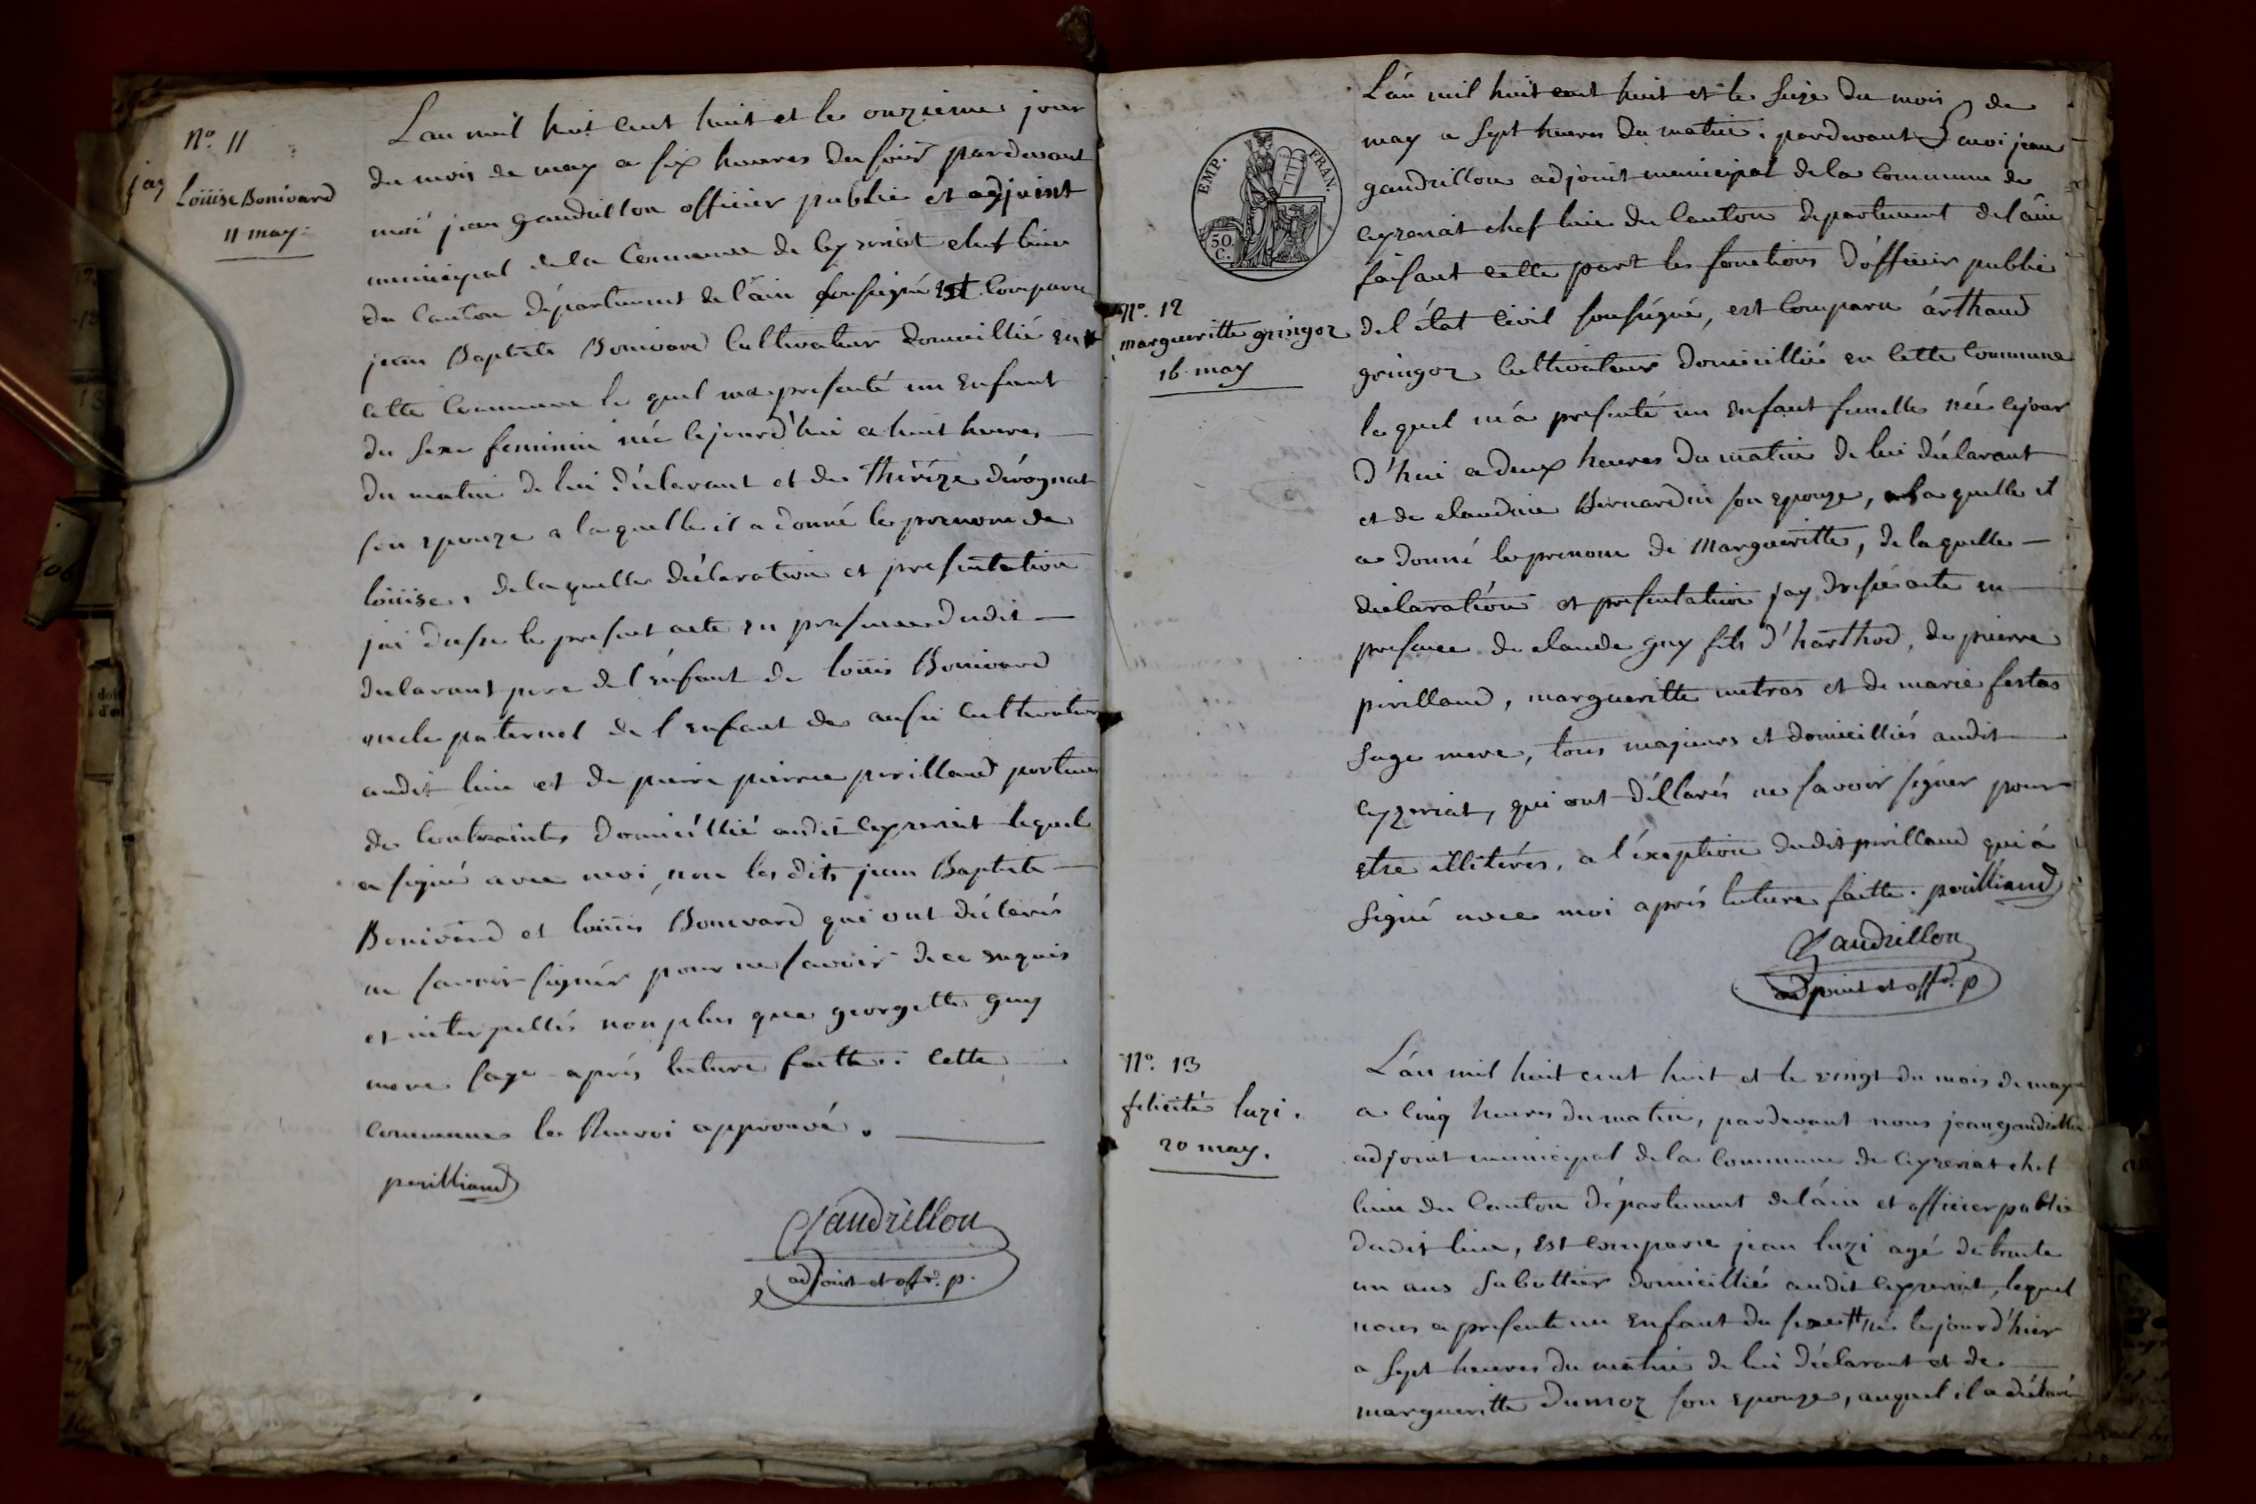 N.o 11
Loüise Bonivard
11 may.
Lan mil huit cent huit et le onzieme jour
du mois de may a six heures du soir pardevant
moi jean gaudrillon officier public et adjoint
municipal de la Commune de Ceyzeriat chef lieu
du Canton département de l'ain soussigné est Comparu
jean Baptiste Bonivard Cultivateur domicillié en
cette Commune le quel ma presenté un Enfant
du sexe feminin né cejourd'hui a huit heures
du matin de lui déclarant et de Théréze dérognat
son epouze a laquelle il a donné le prenom de
loüise, de laquelle déclaration et presentation
jai dressé le present acte en presence dudit
declarant pere de l'énfant de loüis Bonivard
oncle paternel de l'enfant de aussi Cultivateur
audit lieu et de pierre perilland porteur
de Contraintes domicillié audit Ceyzeriat lequel
a signé avec moi, non les dits jean Baptiste
Bonivard et loüis Bonivard qui ont déclarés
ne savoir signér pour ne savoir de ce enquis
et interpellés non plus que georgette guy
mere sage aprés lecture faitte. Cette
commune le Renvoi approuvé.
perilliand
Gaudrillon
adjoint et offr. p.
EMP. FRAN.
50. C.
N.o 12
margueritte gringoz
16 may
L'án mil huit cent huit et le seize du mois de
may a sept heures du matin, pardevant moi jean
gaudrillon adjoint municipal de la Commune de
Ceyzeriat chef lieu du Canton departement de l'ain
faisant cette part les fonctions d'officier public
de l'état Civil soussigné, est Comparu árthaud
gringoz Cultivateur domicillié en cette Commune
le quel m'a presenté un enfant femelle née cejour
d'hui a deux heures du matin de lui déclarant
et de claudine Bernardin son epouze, a la quelle il
a donné le prenom de Margueritte, de la quelle
déclaration et presentation jay dressé acte en
presence de claude guy fils d'harthod, de pierre
perilland, margueritte metras et de marie festas
sage mere, tous majeurs et domicilliés audit
Ceyzeriat, qui ont déllarés ne savoir signer pour
etre illitérés, a l'éxeption dudit perilland qui à
signé avec moi aprés lecture faitte. perilliand
Gaudrillon
adjoint et offr. p
N.o 13
felicité luzi.
20 may.
L'án mil huit cent huit et le vingt du mois de may
a cinq heures du matin, pardevant nous jean gaudrillon
adjoint municipal de la Commune de Ceyzeriat chef
lieu du Canton département de l'áin et officier public
dudit lieu, est comparu jean luzi agé de trente
un ans sabottier domicillié audit Ceyzeriat, lequel
nous a presenté un Enfant du sexe né le jour d'hier
a sept heures du matin de lui déclarant et de
margueritte dumoz son epouze, auquel il a déclaré